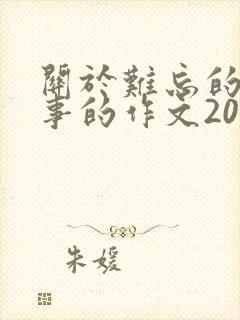 關於難忘的
事的作文20
朱媛